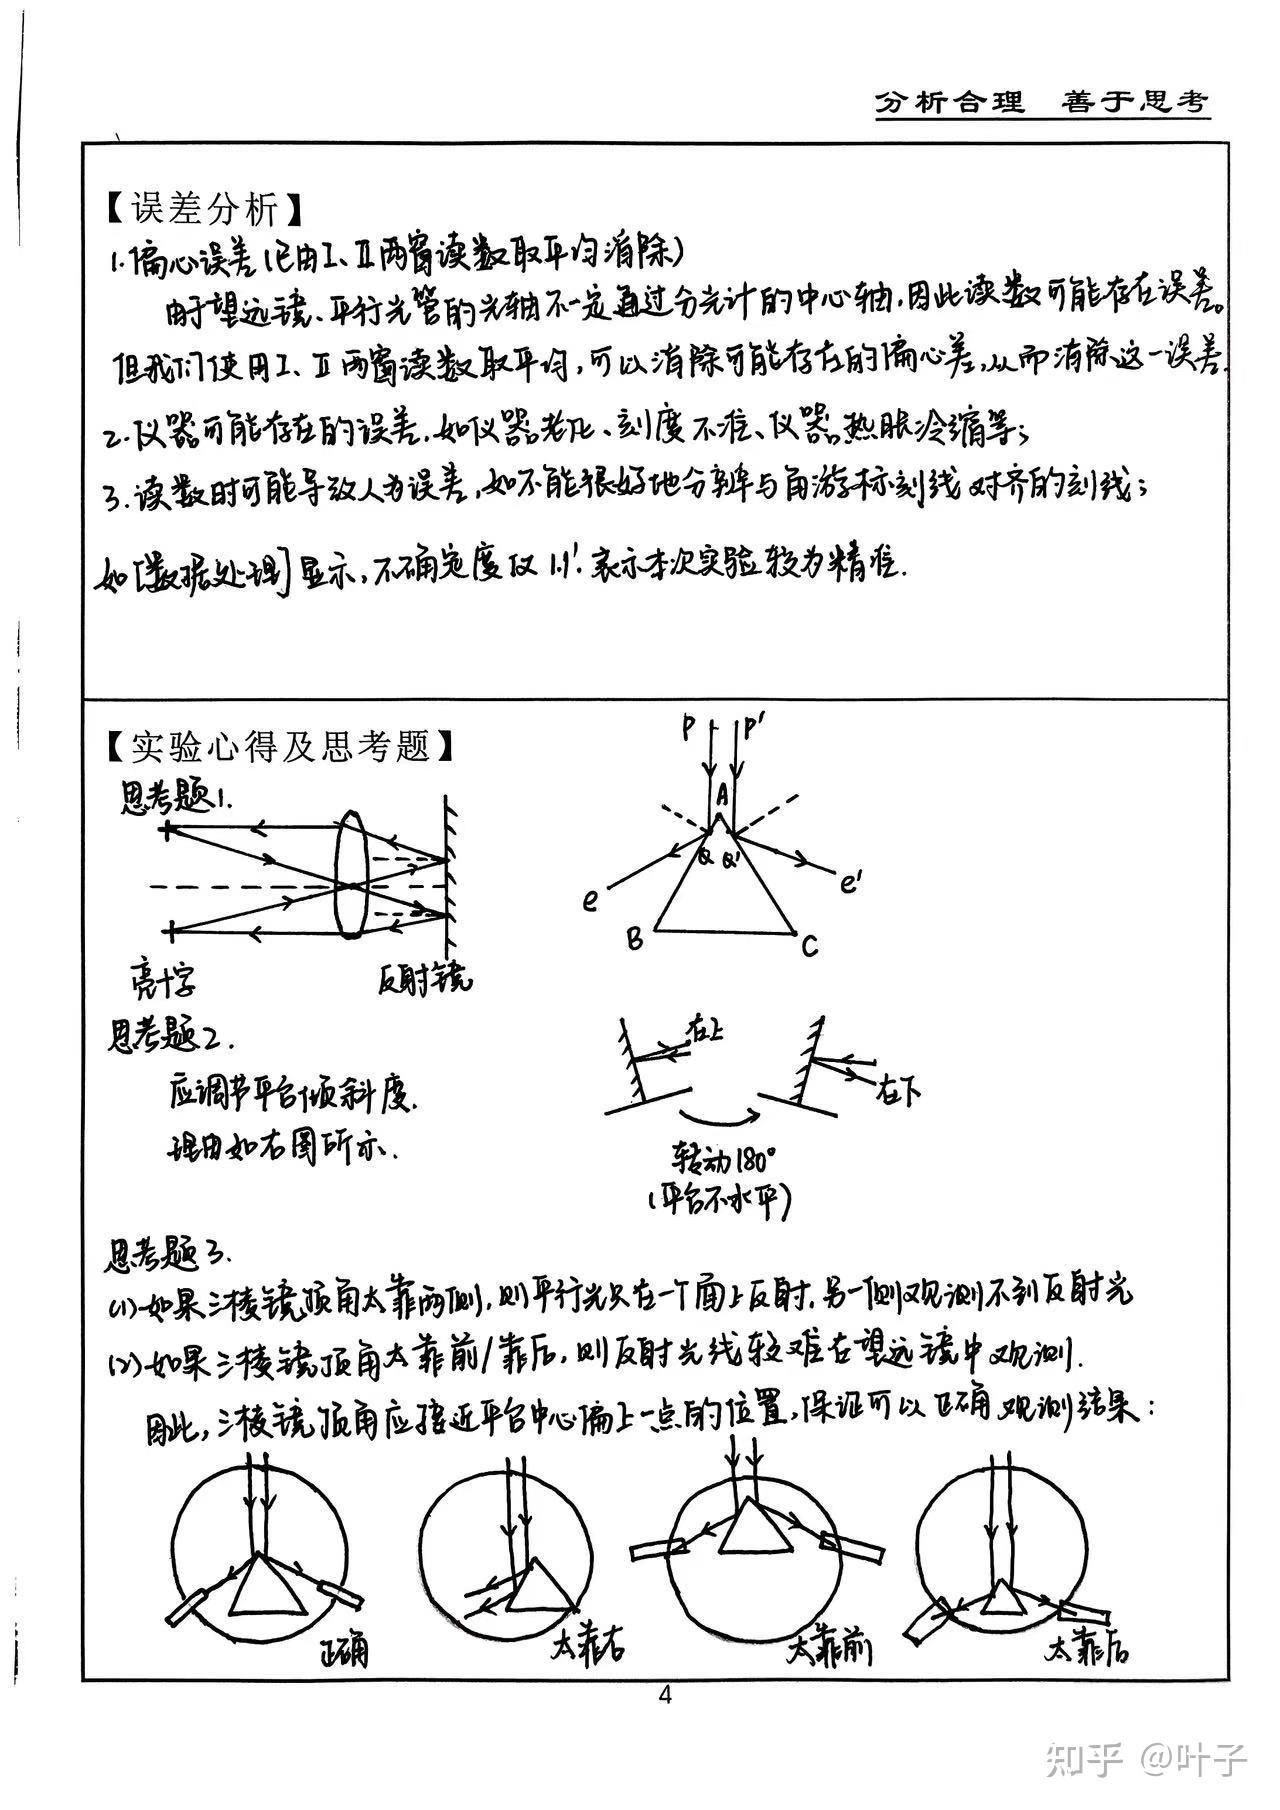 分析合理 善于思考
【误差分析】
1.偏心误差(已由I、II两窗读数取平均消除)
由于望远镜、平行光管的光轴不一定通过分光计的中心轴,因此读数可能存在误差。
但我们使用I、II两窗读数取平均,可以消除可能存在的偏心差,从而消除这一误差.
2.仪器可能存在的误差,如仪器老化、刻度不准、仪器热胀冷缩等;
3.读数时可能导致人为误差,如不能很好地分辨与角游标刻线对齐的刻线;
如[数据处理]显示,不确定度仅1.1′.表示本次实验较为精准.
【实验心得及思考题】
思考题1.
亮十字
反射镜
P P′
A
Q Q′
e e′
B C
思考题2.
应调节平台倾斜度.
理由如右图所示.
右上
右下
转动180°
(平台不水平)
思考题3.
(1)如果三棱镜顶角太靠两侧,则平行光只在一个面上反射,另一侧观测不到反射光
(2)如果三棱镜顶角太靠前/靠后,则反射光线较难在望远镜中观测.
因此,三棱镜顶角应接近平台中心偏上一点的位置,保证可以正确观测结果:
正确
太靠右
太靠前
太靠后
4
知乎 @叶子